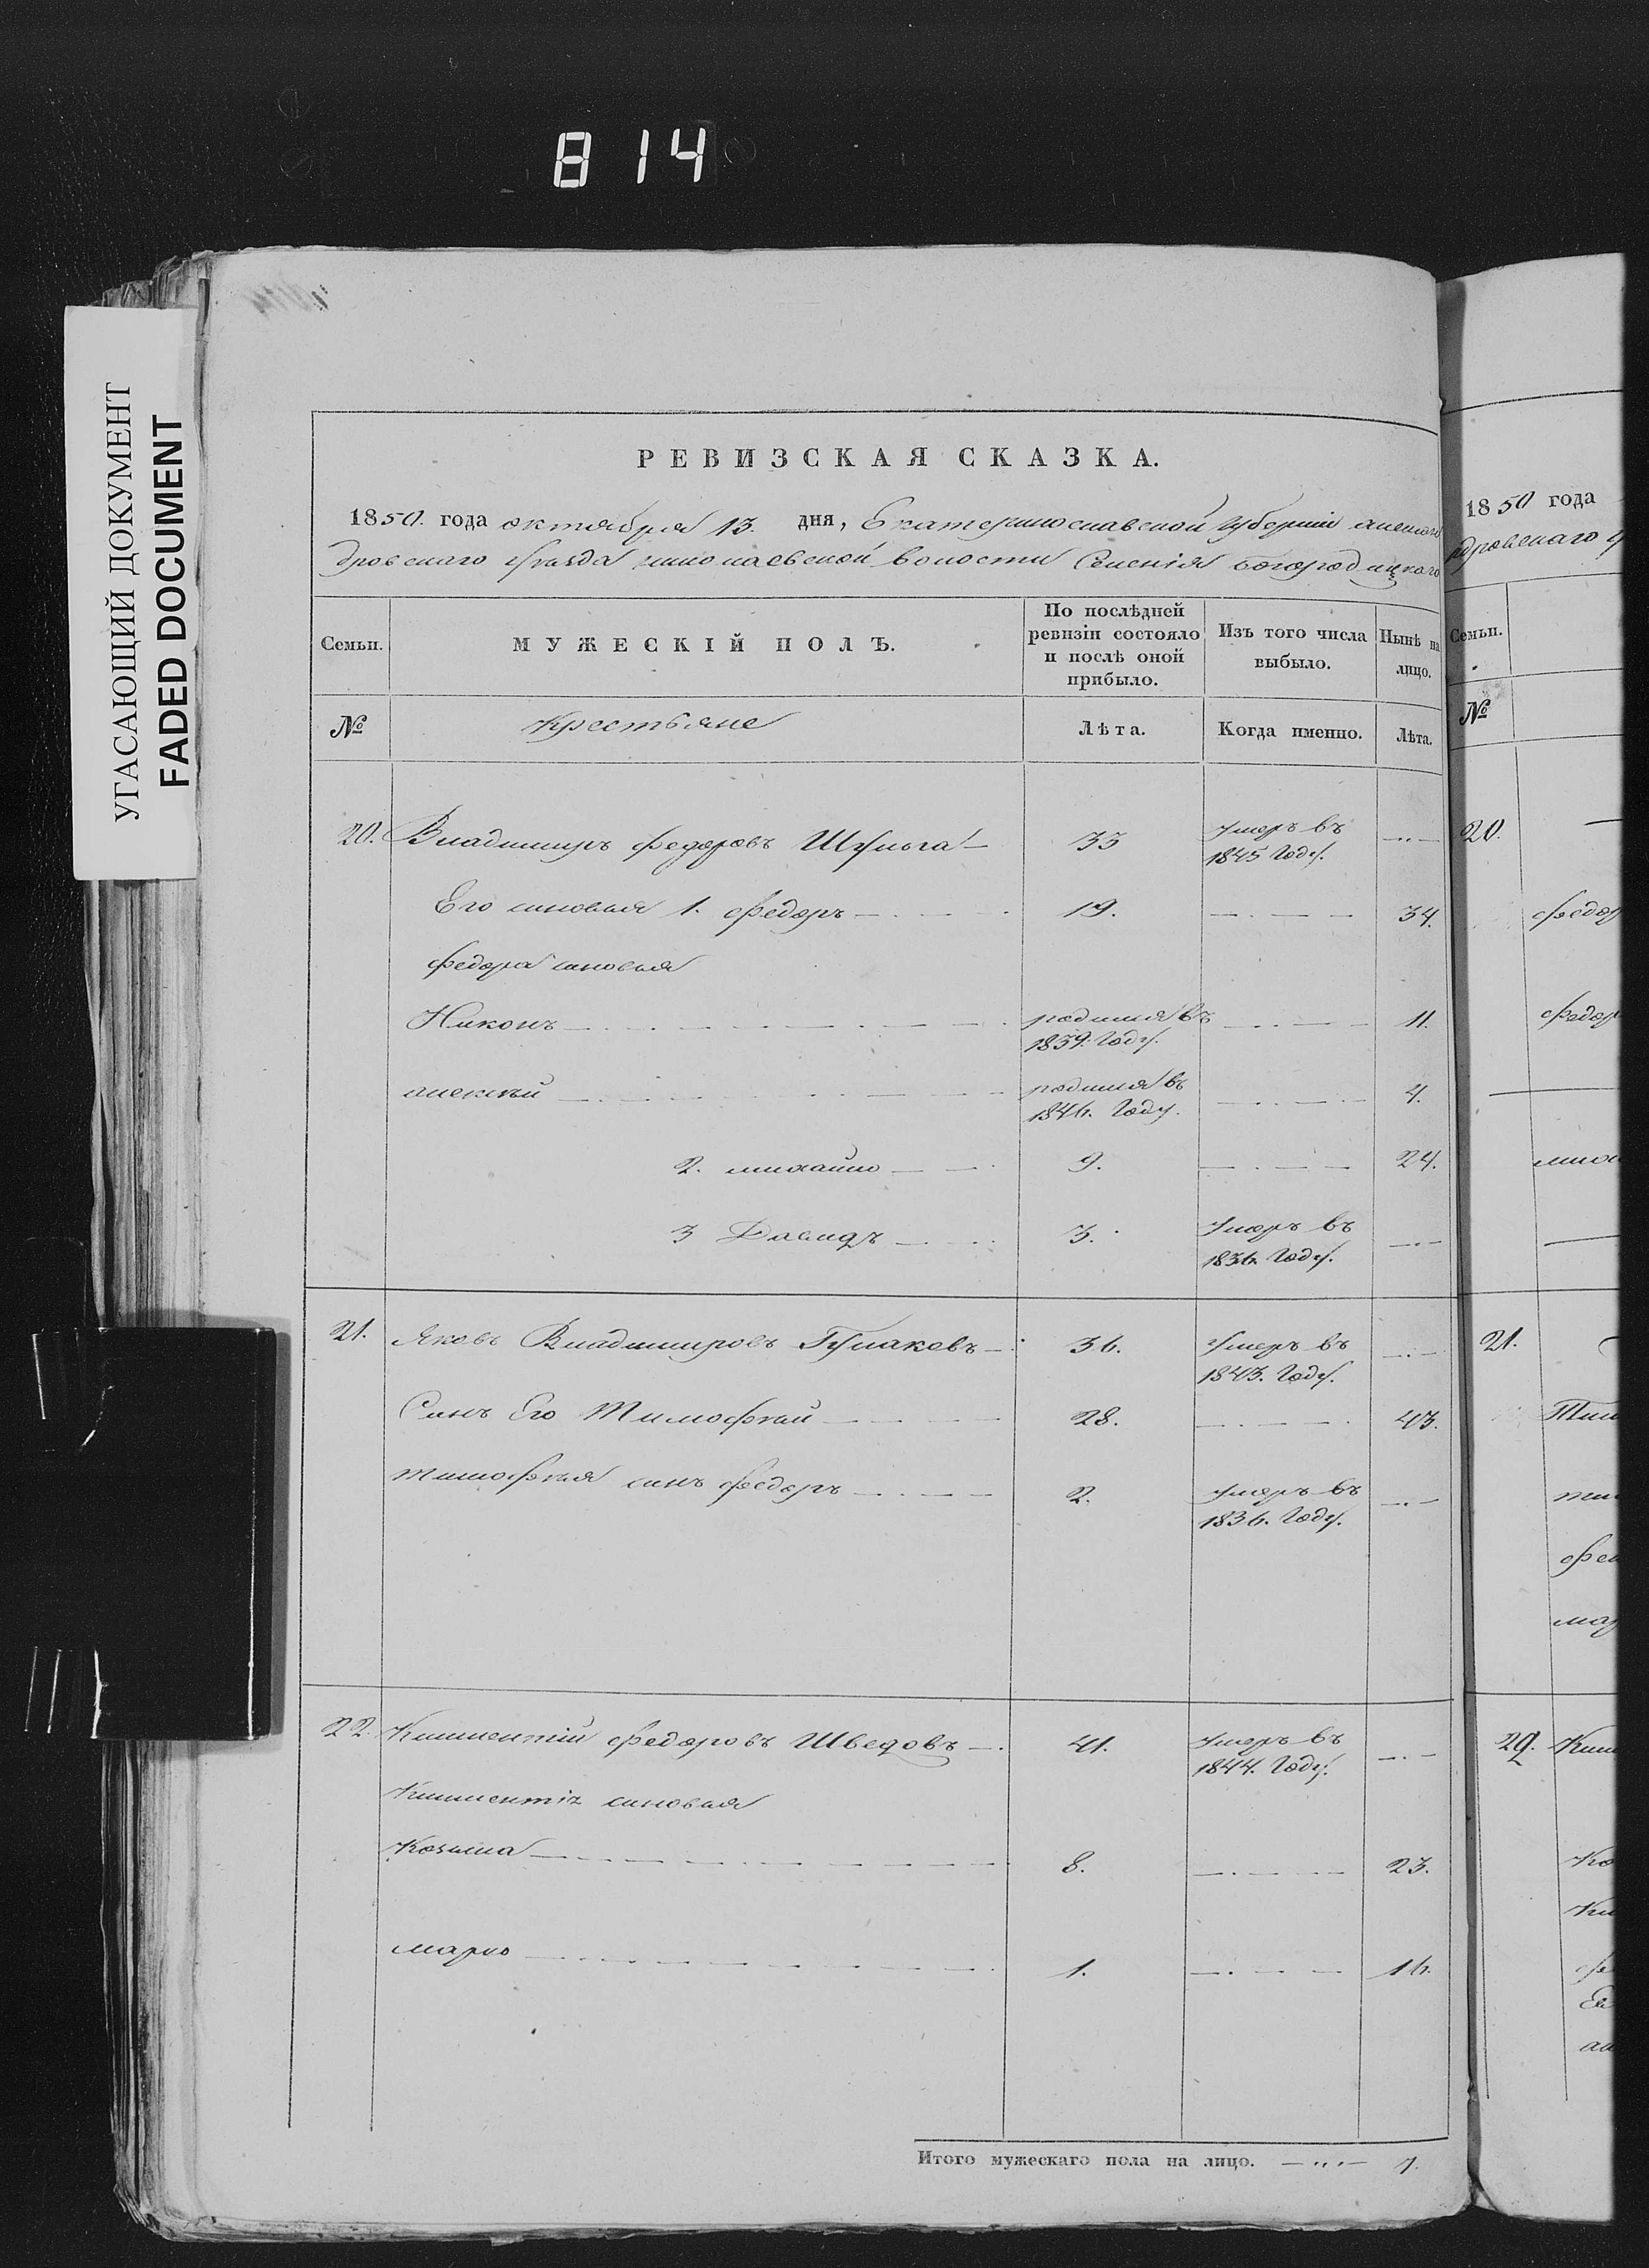 814
УГАСАЮЩИЙ ДОКУМЕНТ
FADED DOCUMENT
РЕВИЗСКАЯ СКАЗКА.
1850. года октября 13. дня, Екатеринославской Губернии алексан
дровскаго уѣзда николаевской волости Селенія богородицкаго
Семьи. МУЖЕСКІЙ ПОЛЪ. По послѣдней ревизіи состояло и послѣ оной прибыло. Изъ того числа выбыло. Нынѣ на лицо.
№ Крестьяне Лѣта. Когда именно. Лѣта.
20. Владимиръ федоровъ Шульга 33 умеръ въ 1845 Году.
Его сыновья 1. федоръ 19. 34.
федора сыновья
Никонъ родился въ 1839. Году. 11.
алексѣй родился въ 1846. Году. 4.
2. михайло 9. 24.
3 Давидъ 3. умеръ въ 1836. Году.
21. Яковъ Владимировъ 36. умеръ въ 1843. Году.
Сынъ Его Тимофѣй 28. 43.
тимофѣя сынъ федоръ 2. умеръ въ 1836. Году.
22. Климентій федоровъ Шведовъ 41. умеръ въ 1844. Году.
Климентія сыновья
Козьма 8. 23.
марко 1. 16.
Итого мужескаго пола на лицо. 7.
1850 года
ндровскаго у
Семьи.
№
20.
федор
федор
миха
21.
Тим
тим
мар
22. Клим
Ко
Кли